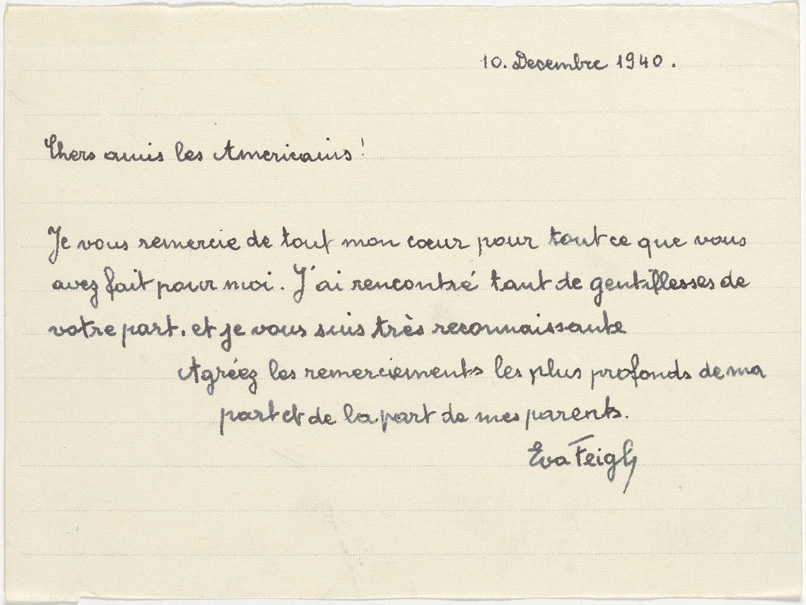 10. Decembre 1940.
Chers amis les Americains!
Je vous remercie de tout mon cœur pour tout ce que vous
avez fait pour moi. J'ai rencontré tant de gentillesses de
votre part, et je vous suis très reconnaissante
Agréez les remerciements les plus profonds de ma
part et de la part de mes parents.
Eva Feigl